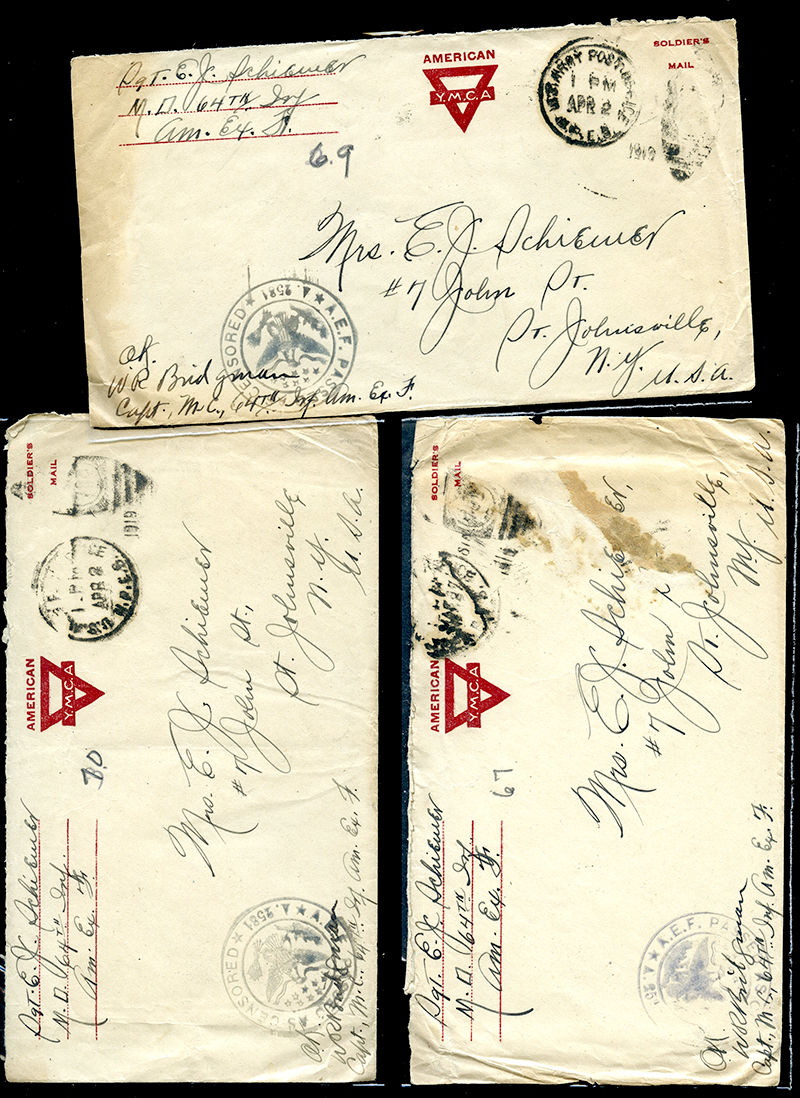 Sgt. E. J. Schiemer
M. D. 64TH Inf
Am. Ex. F.
AMERICAN
Y.M.C.A
U.S. ARMY POST OFFICE
1 PM
APR 2
M.P.E.S.
1919
SOLDIER'S
MAIL
69
Mrs. E. J. Schiemer
#7 John St.
St. Johnsville,
N.Y.
U.S.A.
A.E.F. PASSED CENSORED A. 2581
OK.
W R Bridgman
Capt., M.C., 64TH Inf. Am. Ex. F.
SOLDIER'S
MAIL
1919
1 PM
APR 2
M.P.E.S.
AMERICAN
Y.M.C.A
70
Sgt. E. J. Schiemer
M. D. 64TH Inf.
Am Ex. F.
Mrs. E. J. Schiemer
#7 John St.,
St. Johnsville
N.Y.
U.S.A.
CENSORED A. 2581 A.
OK
W R Bridgman
Capt., M.C., 64TH Inf Am. Ex. F.
SOLDIER'S
MAIL
1919
AMERICAN
Y.M.C.A
67
Sgt E. J. Schiemer
M. D. 64TH Inf
Am Ex. F.
Mrs. E. J. Schie er,
#7 John
St. Johnsville,
N.Y.
U.S.A.
A.E.F. PASSED
OK.
W R Bridgman
Capt, M.C., 64TH Inf. Am. Ex. F.